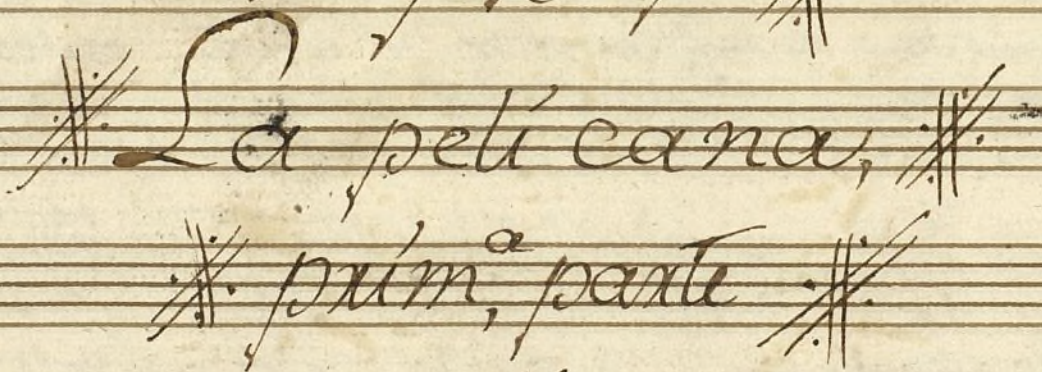 La pelicana,
prim,ª parte